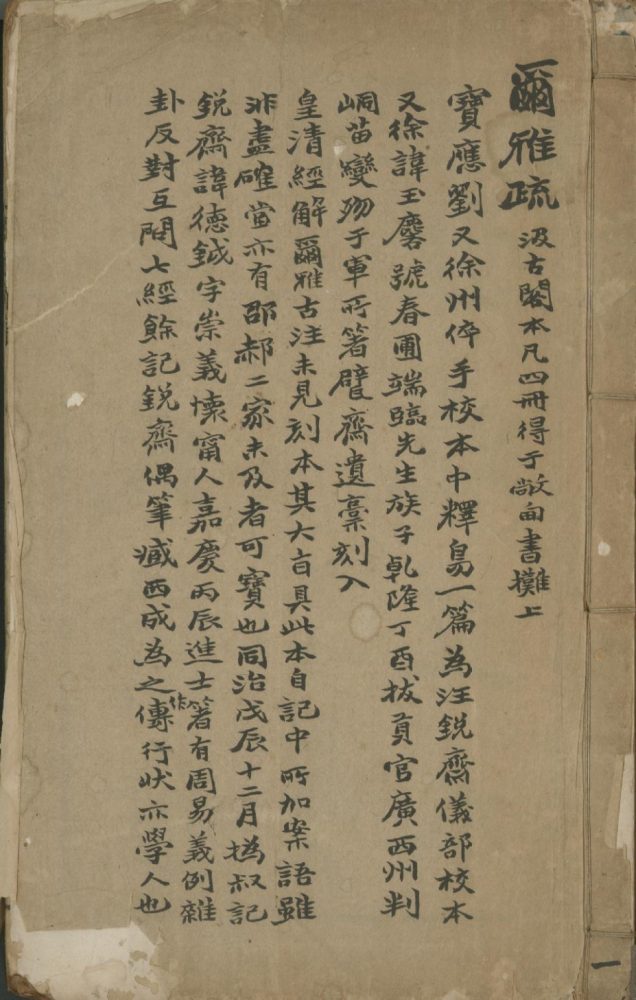 爾雅疏 汲古閣本凡四冊得于敝甸書攤上
寶應劉又徐州倅手校本中釋鳥一篇為汪銳齋儀部校本
又徐諱玉麐號春圃端臨先生族子乾隆丁酉拔貢官廣西州判
峒苗變歿于軍所箸甓齋遺稾刻入
皇清經解爾雅古注未見刻本其大旨具此本自記中所加案語雖
非盡確當亦有邵郝二家未及者可寶也同治戊辰十二月撝叔記
銳齋諱德鉞字崇義懷甯人嘉慶丙辰進士箸有周易義例雜
卦反對互閱七經餘記銳齋偶筆臧西成為之作傳行狀亦學人也
一